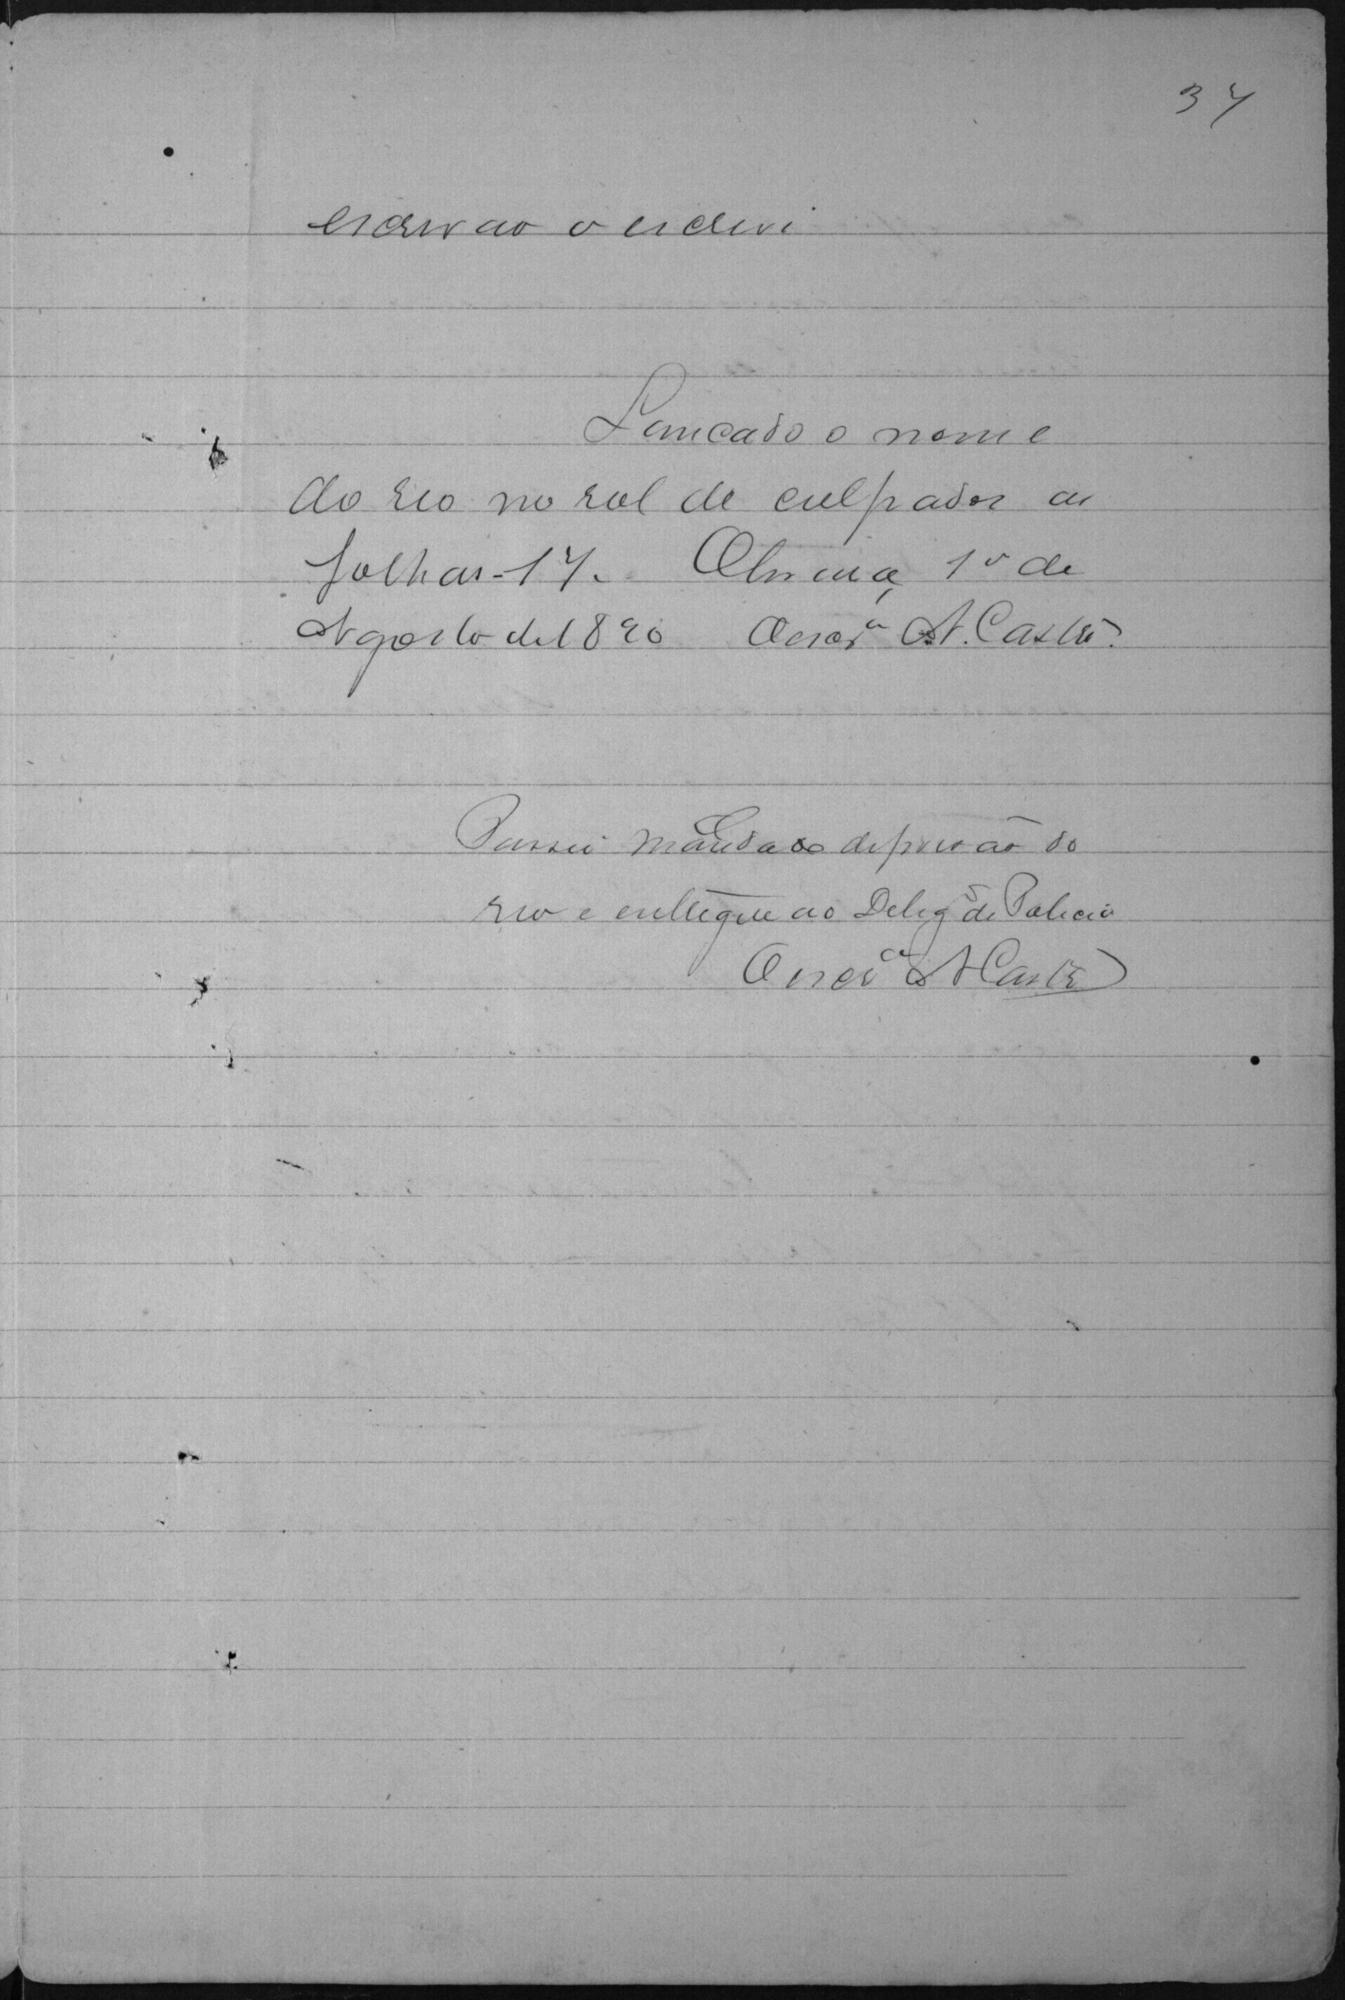 37
escrivão o escrevi
Lancado o nome
do reo no rol de culpados as
folhas-17. 1º de
Agosto de 1890 O escrª A. Castro.
Passei mandado de prisão do
reo e entregue ao Deleg de Policia
O escrª A Castro